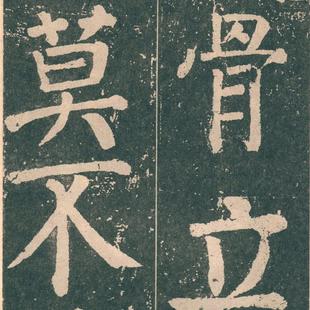 骨立
莫不